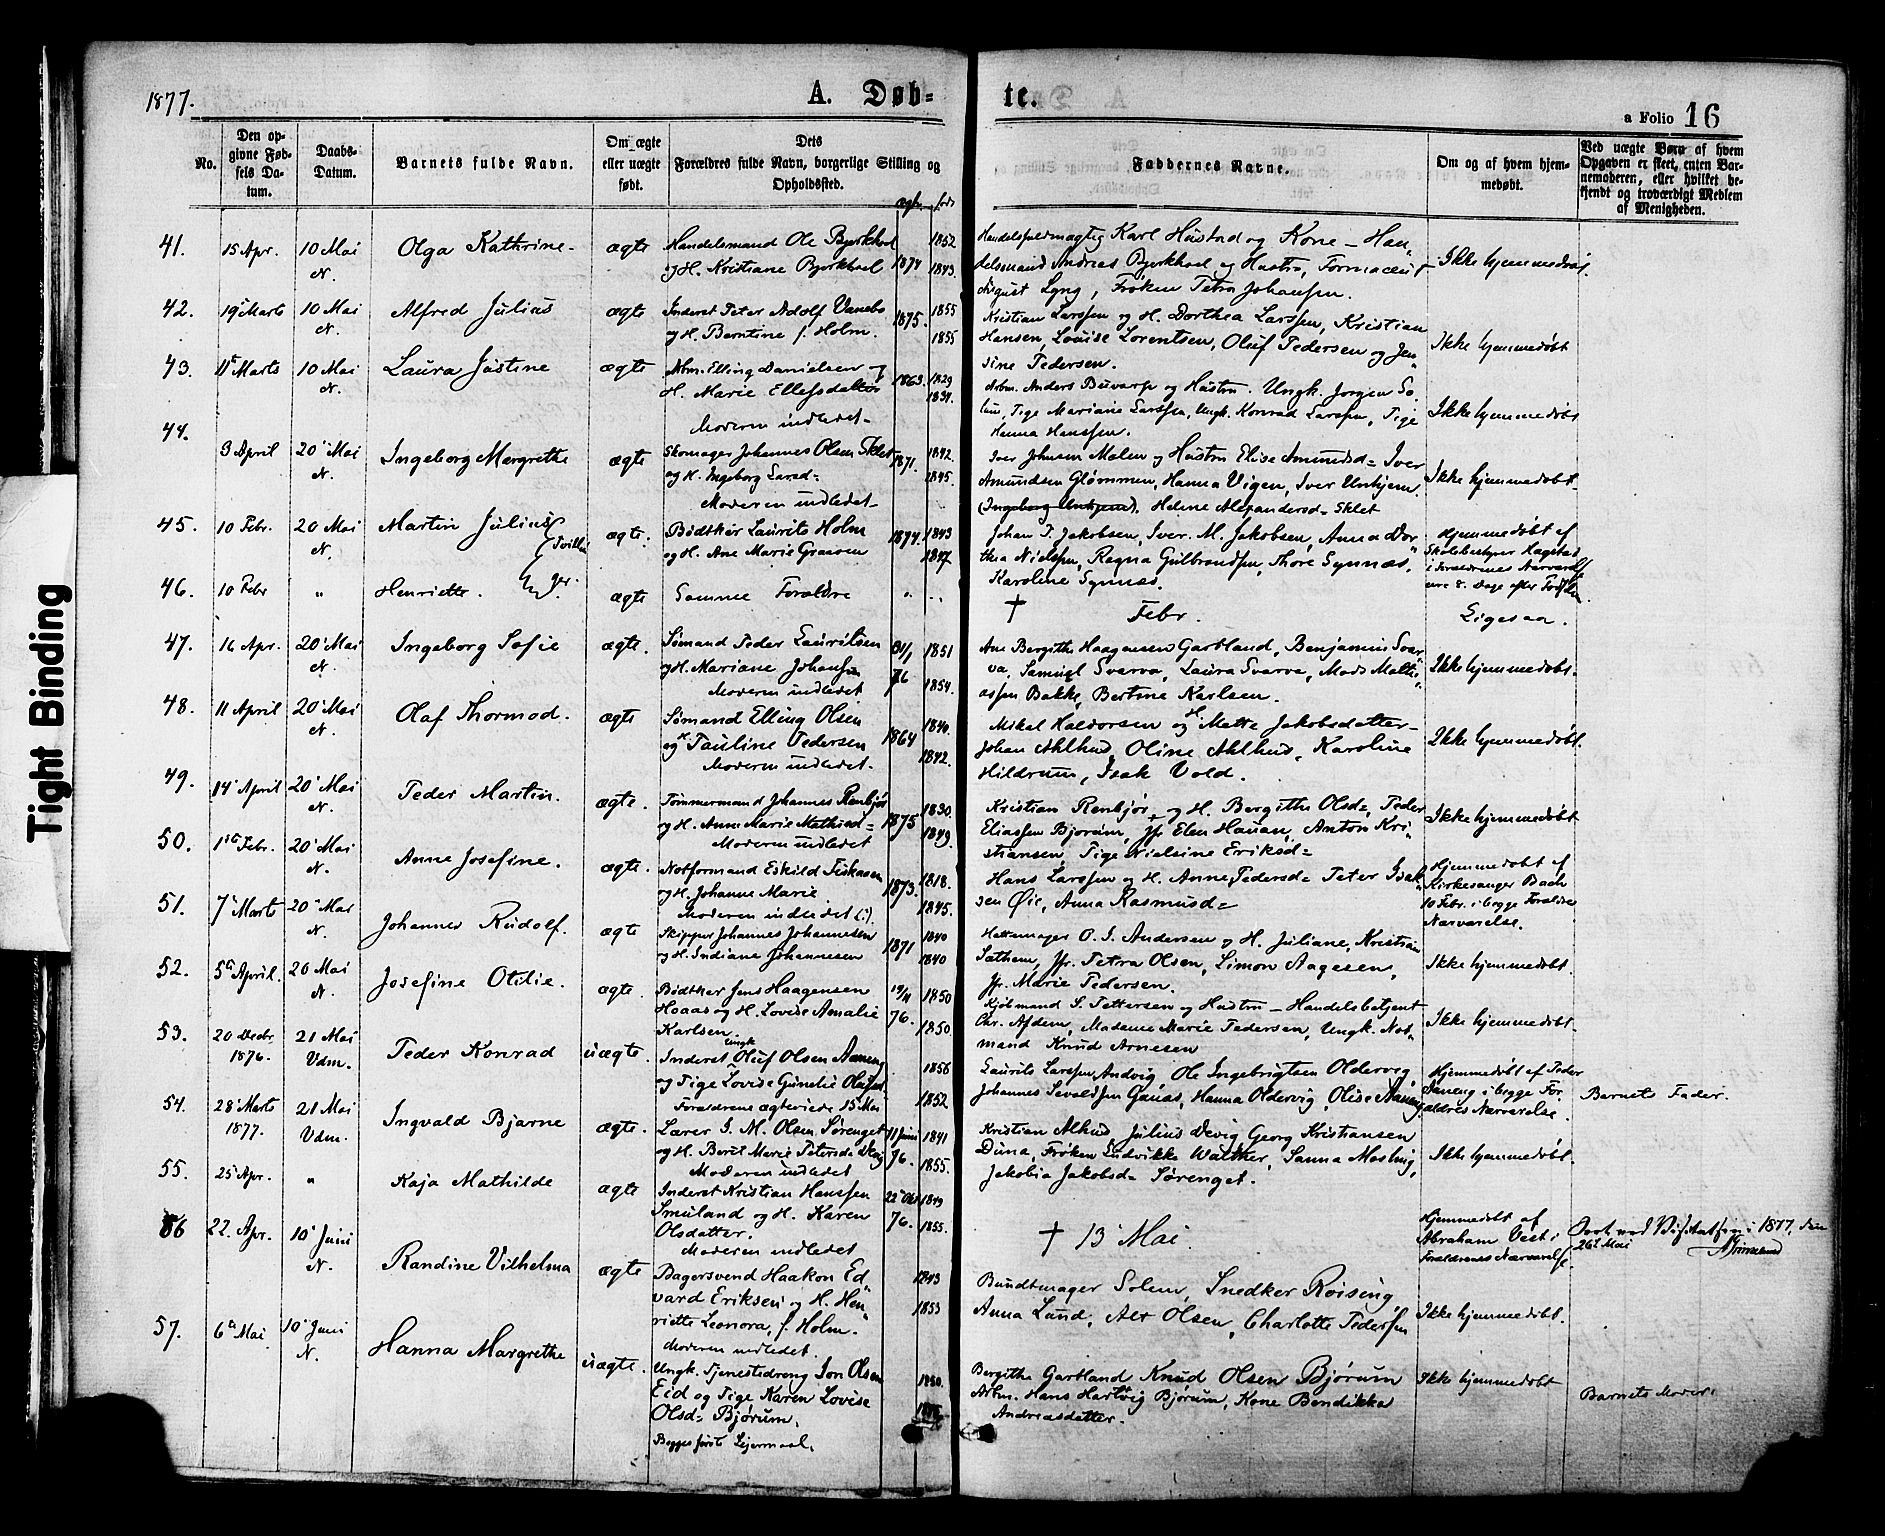 1877.
A. Døb-
te.
a Folio 16
No.
Den op-
givne Fød-
sels Da-
tum.
Daabs-
Datum.
Barnets fulde Navn.
Om ægte
eller uægte
født.
Dets
Forældres fulde Navn, borgerlige Stilling og
Opholdssted.
Faddernes Navne.
Om og af hvem hjem-
medøbt.
Ved uægte Børn af hvem
Opgaven er skeet, enten Bar-
nemoderen, eller hvilket be-
kjendt og troværdigt Medlem
af Menigheden.
41. 15 Apr. 10 Mai N. Olga Kathrine ægte
Handelsmand Ole Bjerkhoel 1852
og H. Kristiane Bjerkhoel 1874 1843.
Karl Hustad og Kone – Han
delsmand Andreas Bjerkhoel og Hustru,
August Lyng, Frøken Petra Johansen.
Ikke hjemmedøbt
42. 19 Marts 10 Mai N. Alfred Julius ægte
Inderst Peter Adolf Vanebo 1855
og H. Berntine f. Holm. 1875. 1855
Kristian Larssen og H. Dorthea Larssen, Kristian
Hansen, Louise Lorentsen, Oluf Pedersen og Jen
sine Pedersen.
Ikke hjemmedøbt
43. 11 Marts 10 Mai N. Laura Justine ægte
Arbm. Elling Danielsen og 1863. 1829
H. Marie Ellefsdatter 1834.
Moderen indledet
Arbm. Anders Buvarp og Hustru. Ungk. Jørgen So
lum, Pige Mariane Larssen, Ungk. Konrad Larssen, Pige
Hanna Hanssen.
Ikke hjemmedøbt
44. 3 April 20 Mai N. Ingeborg Margrethe ægte
Skomager Johannes Olsen Sklet 1871. 1842.
og H. Ingeborg Larsd= 1845.
Moderen indledet
Iver Johnsen Malen og Hustru Elise Amundsd= Iver
Amundsen Glømmen, Hanna Vigen, Iver Unhjem.
(Ingeborg Unhjem), Helene Alexandersd= Sklet
Ikke hjemmedøbt
45. 10 Febr. 20 Mai N. Martin Julius ægte.
Tvillin
ger.
Bødtker Laurits Holm 1874. 1843
og H. Ane Marie Graaven 1847
Johan P. Jakobsen, Iver M. Jakobsen, Anna Dor
thea Nielsen, Ragna Gulbrandsen, Thore Synnæs,
Karoline Synnæs.
Hjemmedøbt af
Skolebestyrer Hagstad
i Forældrenes Nærværelse
46. 10 Febr " Henriette. ægte
Samme Forældre
† Febr.
Ligesaa.
47. 16 Apr. 20 Mai N. Ingeborg Sofie ægte.
Sømand Peder Lauritsen 1851
og H. Mariane Johansen 76 1854.
Moderen indledet
Ane Bergithe Haagensen Gartland, Benjamin Svar
va, Samuel Svarva, Laura Svarva, Mads Mathi
assen Bakke, Bertine Karlsen.
Ikke hjemmedøbt.
48. 11 April 20 Mai N. Olaf Thormod. ægte
Sømand Elling Olsen 1840.
og H. Pauline Pedersen 1864 1842.
Moderen indledet.
Mikal Haldorsen og H. Mette Jakobsdatter
Johan Ahlhus, Oline Ahlhus, Karoline
Hildrum, Isak Vold.
Ikke hjemmedøbt.
49. 14 April 20 Mai N. Peder Martin. ægte.
Tømmermand Johannes Renbjør 1830.
og H. Anne Marie Mathisd= 1875 1849.
Moderen indledet
Kristian Renbjør og H. Bergithe Olsd=, Peder
Eliassen Bjørum, Jfr. Elen Hauan, Anton Kri
stiansen, Pige Nielsine Eriksd=
Ikke hjemmedøbt
50. 1ste Febr. 20 Mai N. Anne Josefine. ægte.
Notformand Eskild Fiskaasen 1818.
og H. Johanne Marie 1873. 1845.
Moderen indledet (:)
Hans Larssen og H. Anne Pedersd= Peter Isak
sen Øie, Anna Rasmusd=
Hjemmedøbt af
Kirkesanger Bach
10 Febr. i begge Forældres
Nærværelse.
51. 7 Marts 20 Mai N. Johannes Rudolf. ægte
Skipper Johannes Johannesen 1840
og H. Indiane Johannesen 1871 1840
Hattemager O. I. Andersen og H. Juliane, Kristian
Sathem, Jfr. Petra Olsen, Simon Aagesen,
Jfr. Marie Pedersen.
Ikke hjemmedøbt.
52. 5 April. 20 Mai N. Josefine Otilie. ægte.
Bødtker Jens Haagensen 1850
Hoaas og H. Lovise Amalie 76. 1850.
Karlsen.
Kjøbmand S. Pettersen og Hustru – Handelsbetjent
Chr. Afdem, Madame Marie Pedersen, Ungk. Not
mand Knud Arnesen
Ikke hjemmedøbt.
53. 20 Decbr 1876. 21 Mai Vdm. Peder Konrad uægte.
Inderst Ungk Oluf Olsen Aaneng 1856
og Pige Lovise Gunelie Olufsd. 1852
Forældrene ægteviede 15 Mai
Laurits Larssen Andvig, Ole Ingebrigtsen Oldervig,
Johannes Sevaldsen Ganas, Hanna Oldervig, Olise Aaneng
Hjemmedøbt af Peder
Aaneng i begge For
ældres Nærværelse.
Barnets Fader.
54. 28 Marts 1877. 21 Mai Vdm. Ingvald Bjarne ægte.
Lærer I. M. Olsen Sørenget 11 Juni 1841
og H. Beril Marie Petersd= Devig 76. 1855.
Moderen indledet
Kristian Alhus, Julius Devig, Georg Kristiansen
Duna, Frøken Ludvikke Walther, Sanna Mosling,
Jakobia Jakobsd= Sørenget.
Ikke hjemmedøbt.
55. 25 Apr. " Kaja Mathilde ægte
Inderst Kristian Hanssen 22 Okt 1849
Smuland og H. Karen 76. 1855.
Olsdatter.
Moderen indledet
† 13 Mai.
Hjemmedøbt af
Abraham Vest i
Forældrenes Nærværelse.
1877, den
26 Mai
56 22. Apr. 10 Juni N. Randine Vilhelma ægte
Bagersvend Haakon Ed 1843
vard Eriksen og H. Hen 1853
riette Leonora, f. Holm.
Moderen indledet.
Bundtmager Solem, Snedker Røising,
Anna Lund, Alv Olsen, Charlotte Pedersen
Ikke hjemmedøbt.
57. 6 Mai 10 Juni N. Hanna Margrethe uægte.
Ungk. Tjenestedreng Jon Olsen 1850.
Eid og Pige Karen Lovise
Olsd= Bjørum.
Begges første Lejermaal.
Bergitha Gartland Knud Olsen Bjørum
Arbm. Hans Hartvig Bjørum, Kone Bendikka
Andreasdatter.
Ikke hjemmedøbt
Barnets Moder.
Tight Binding